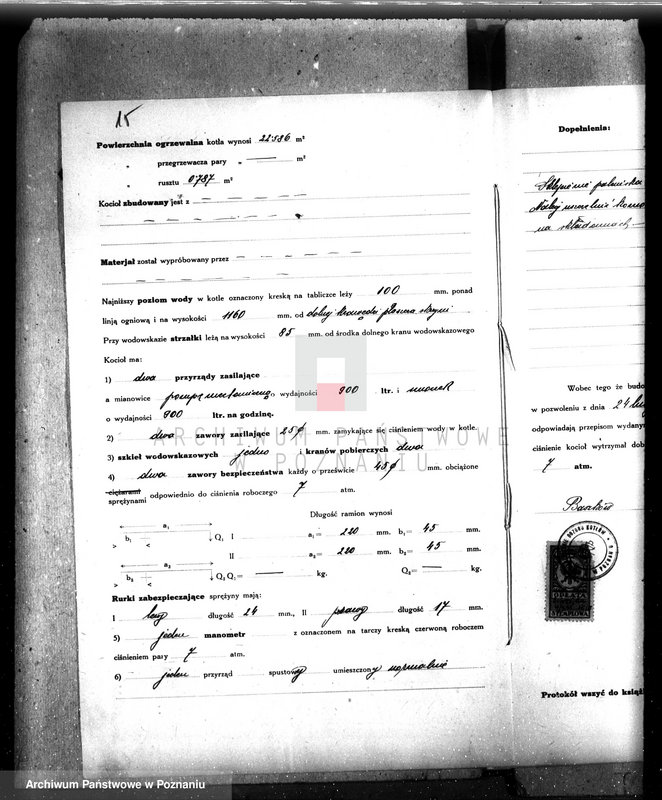 15
Powierzchnia ogrzewalna kotła wynosi 22586 m²
„ przegrzewacza pary „ — m²
„ rusztu 0'787 m²
Kocioł zbudowany jest z
Materjał został wypróbowany przez
Najniższy poziom wody w kotle oznaczony kreską na tabliczce leży 100 mm. ponad
linją ogniową i na wysokości 1160 mm. od dolnej krawędzi płaszcza skrzyni
Przy wodowskazie strzałki leżą na wysokości 85 mm. od środka dolnego kranu wodowskazowego
Kocioł ma:
1) dwa przyrządy zasilające
a mianowicie pompę mechaniczną o wydajności 900 ltr. i
o wydajności 900 ltr. na godzinę.
2) dwa zawory zasilające 25 φ mm. zamykające się ciśnieniem wody w kotle.
3) szkieł wodowskazowych jedno i kranów pobierczych dwa
4) dwa zawory bezpieczeństwa każdy o prześwicie 45 φ mm. obciążone
ciężarami
sprężynami odpowiednio do ciśnienia roboczego 7 atm.
Długość ramion wynosi
a₁
b₁ Q₁ I a₁ = 220 mm. b₁ = 45 mm.
II a₂ = 220 mm. b₂ = 45 mm.
a₂
b₂ Q₂ Q₁ = — kg. Q₂ = — kg.
Rurki zabezpieczające sprężyny mają:
I lewy długość 24 mm., II prawy długość 17 mm.
5) jeden manometr z oznaczonem na tarczy kreską czerwoną roboczem
ciśnieniem pary 7 atm.
6) jeden przyrząd spustowy umieszczony normalnie
Dopełnienia:
na składzinach
Wobec tego że budo
w pozwoleniu z dnia 24 lu
odpowiadają przepisom wydany
ciśnienie kocioł wytrzymał dob
7 atm.
OPŁATA
STEMPLOWA
Protokół wszyć do książ
ARCHIWUM PAŃSTWOWE
W POZNANIU
Archiwum Państwowe w Poznaniu